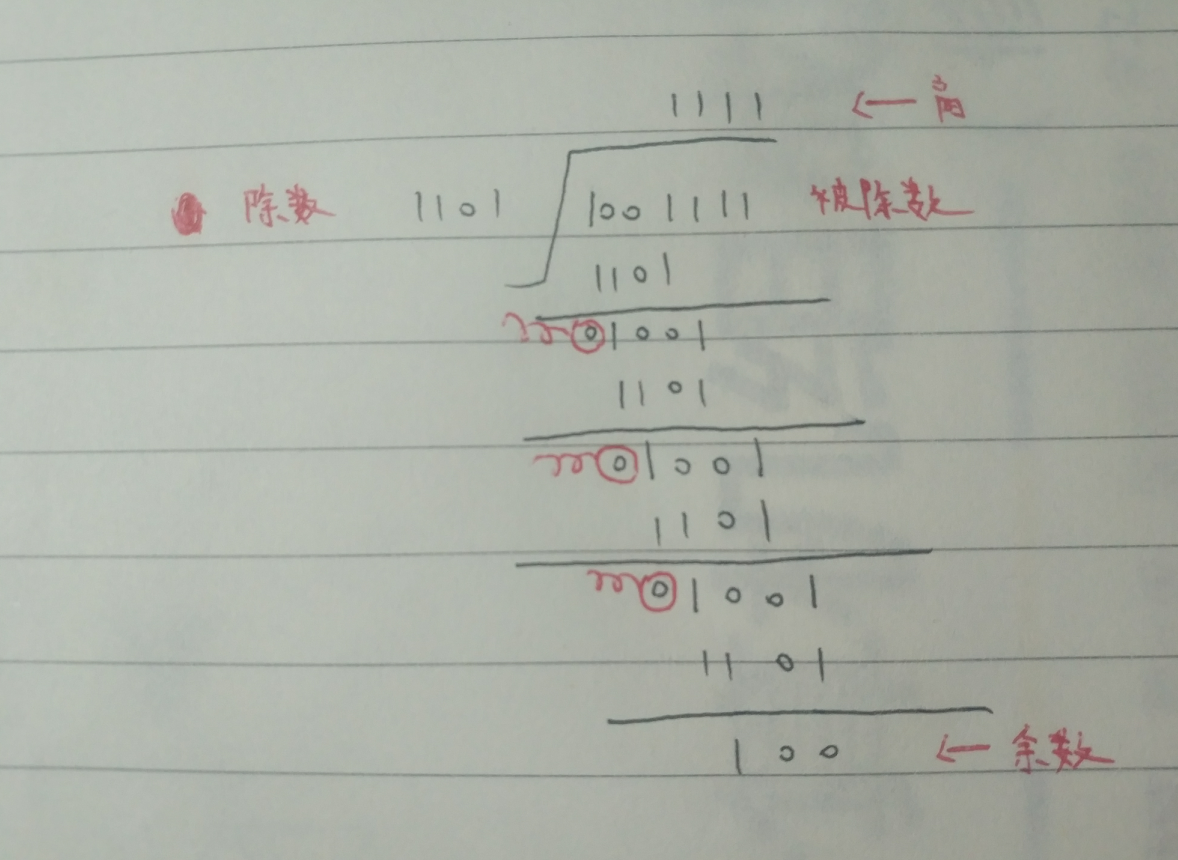 1111 ← 商
除数 1101 1001111 被除数
1101
01001
1101
01001
1101
01001
1101
100 ← 余数